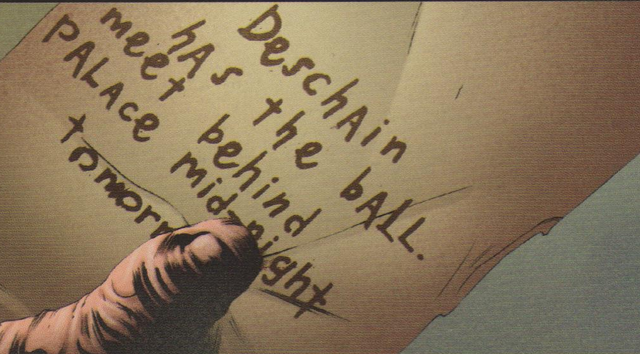 DeschAin
hAs the bALL.
meet behind
PALAce midnight
tomorr